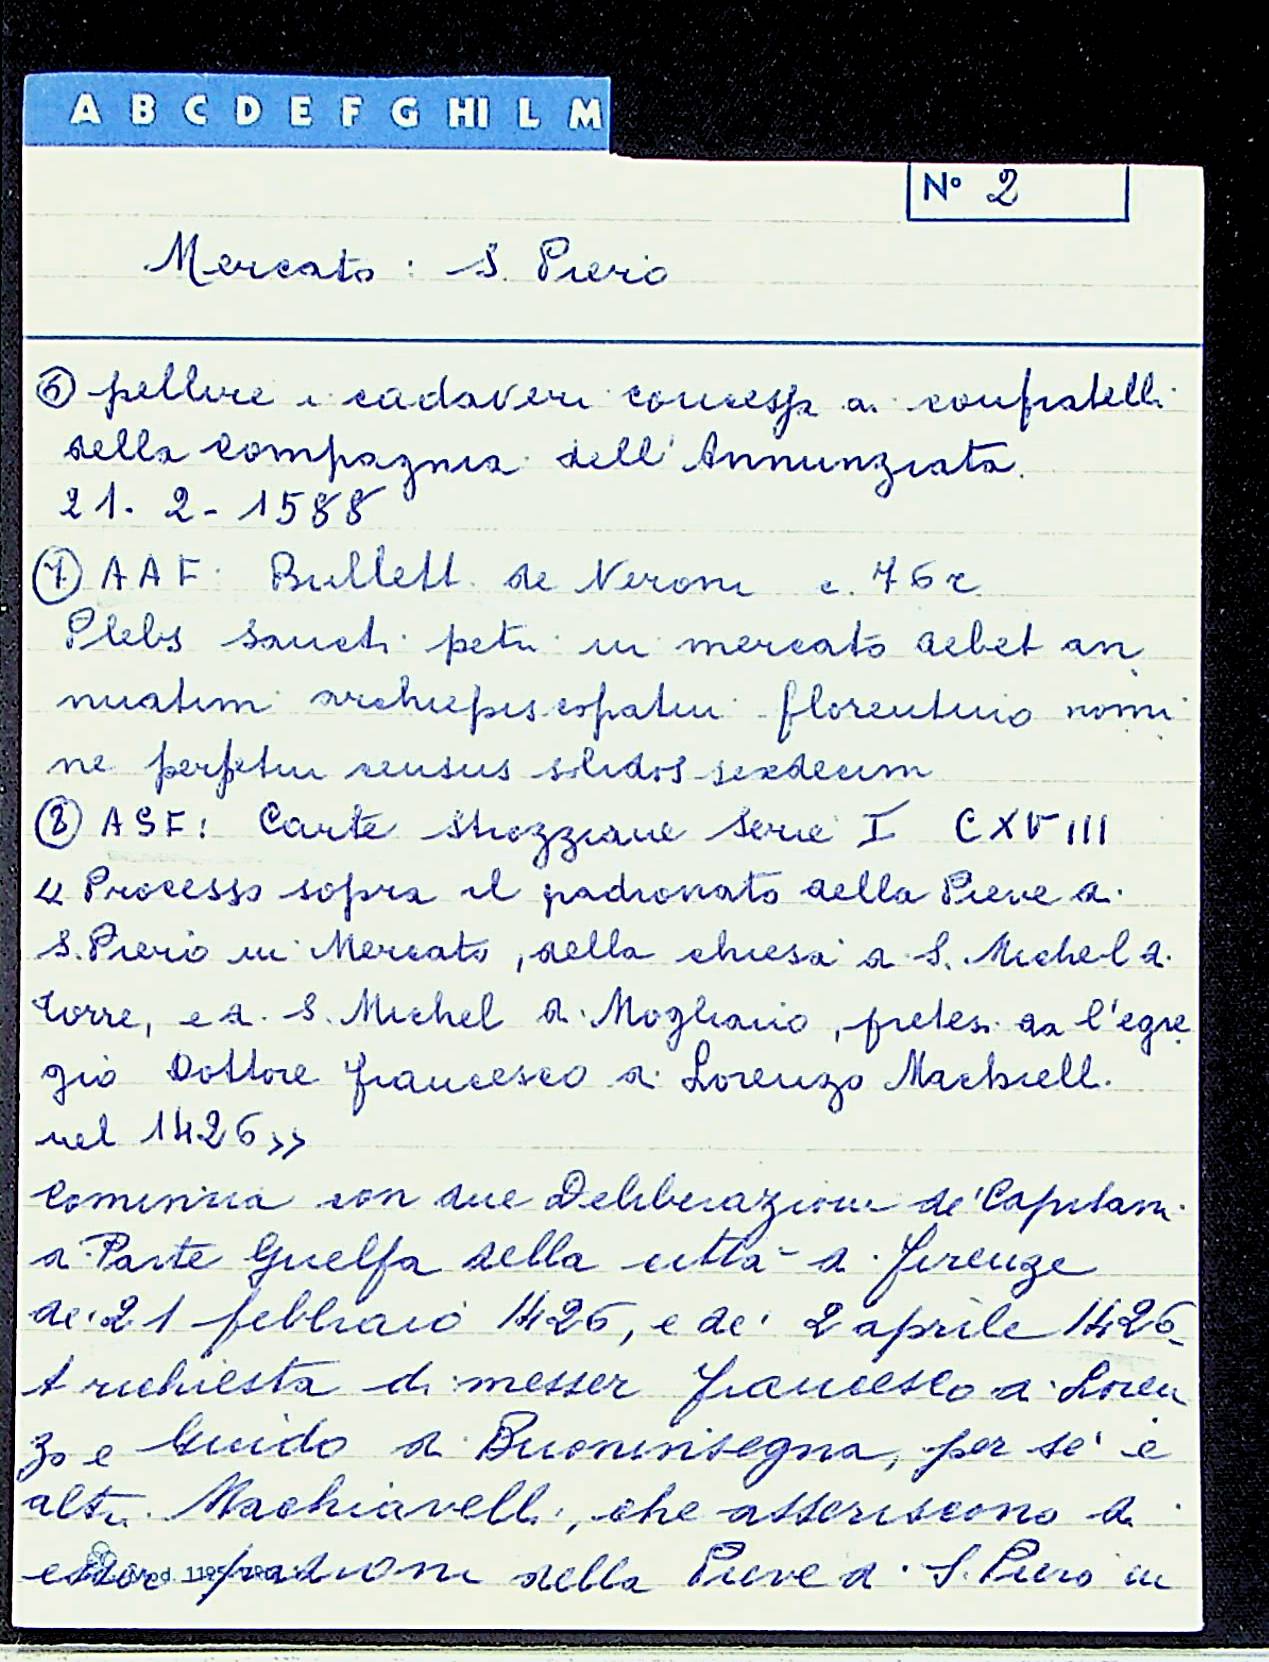 A B C D E F G HI L M
N° 2
Mercato : S. Piero
⑥ pellire i cadaveri concessa ai confratelli
della Compagnia dell'Annunziata.
21. 2 - 1588
⑦ AAF: Bullett. de Neroni c. 76r
Plebs sancti petri in mercato debet an
nuatim archiepiscopatui florentino nomi
ne perpetui census solidos sexdecim
⑧ ASF: Carte Strozziane Serie I CXVIII
« Processo sopra il padronato della Pieve di
S. Piero in Mercato, della chiesa di S. Michel a
Torre, e di S. Michel a Mogliano, pretesi da l'egre
gio Dottore francesco di Lorenzo Machiell.
nel 1426 »
Comincia con due Deliberazioni de' Capitani
di Parte Guelfa della città di firenze
de' 21 febbraio 1426, e de' 2 aprile 1426.
A richiesta di messer francesco di Loren
zo e Guido di Buoninsegna, per sé e
altri Machiavelli, che asseriscono di
essere padroni della Pieve di S. Piero in
Mod. 1195